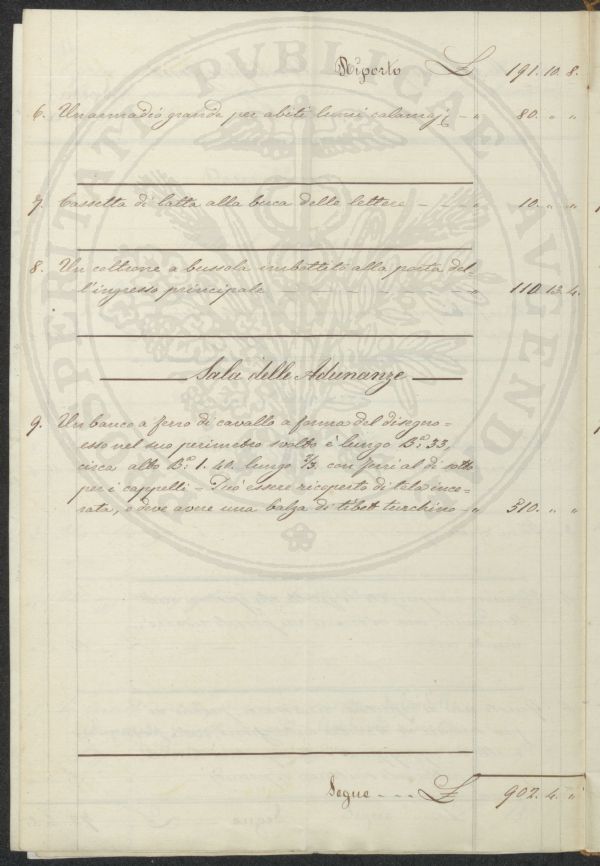 Riporto £ 191. 10. 8.
6. Un armadio grande per abiti lumi calamaj - " 80. " "
7. Cassetta di latta alla buca delle lettere - - - " 10. " "
8. Un coltrone a bussola imbottito alla porta del
l'ingresso principale - - - - - - " 110. 13. 4.
Sala delle Adunanze
9. Un banco a ferro di cavallo a forma del disegno =
esso nel suo perimetro svolto è lungo Ba. 33,
circa alto Ba. 1. 40. lungo 2/3. con ferri al di sotto
per i cappelli - Può essere ricoperto di tela ince=
rata, e deve avere una balza di tibet turchino - " 510. " "
Segue - - - £ 902. 4. "
SPERITATI PVBLICAE AVGENDAE